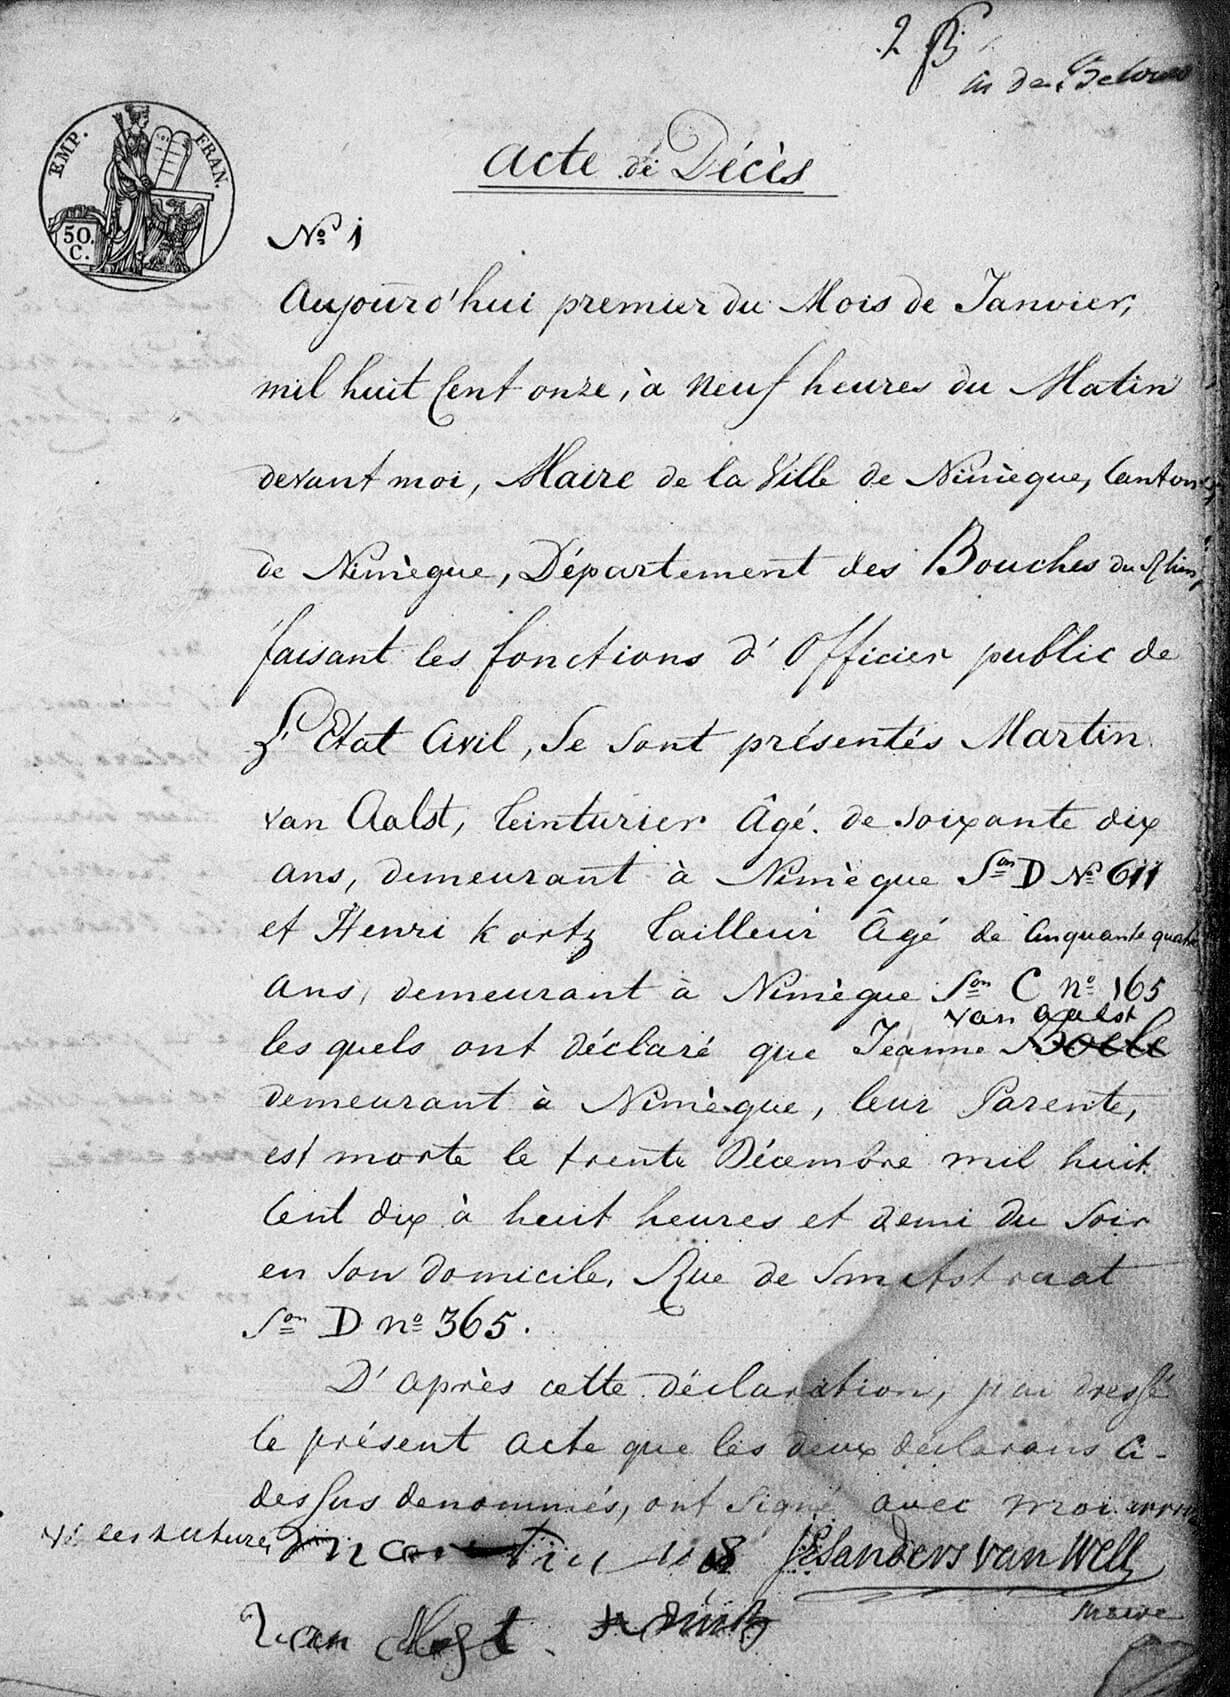 2
EMP. FRAN.
50. C.
Acte de Décès
No. 1
Aujourd'hui premier du Mois de Janvier,
mil huit Cent onze, à Neuf heures du Matin
devant moi, Maire de la Ville de Nimègue, Canton
de Nimègue, Département des Bouches du Rhin,
faisant les fonctions d'Officier public de
L'Etat Civil, Se sont présentés Martin
van Aalst, teinturier Âgé. de soixante dix
ans, demeurant à Nimègue Son D No 611
et Henri Kortz tailleur Âgé de Cinquante quatre
ans, demeurant à Nimègue Son C no 165
van Aalst
les quels ont déclaré que Jeanne
demeurant à Nimègue, leur Parente,
est morte le trente Décembre mil huit
Cent dix à huit heures et demi du Soir
en Son domicile, Rue de Smetstraat
Son D no 365.
D'après cette déclaration, j'ai dressé
le présent acte que les deux déclarans Ci-
dessus denommés, ont signé avec moi
Sanders van Well
Maire
van